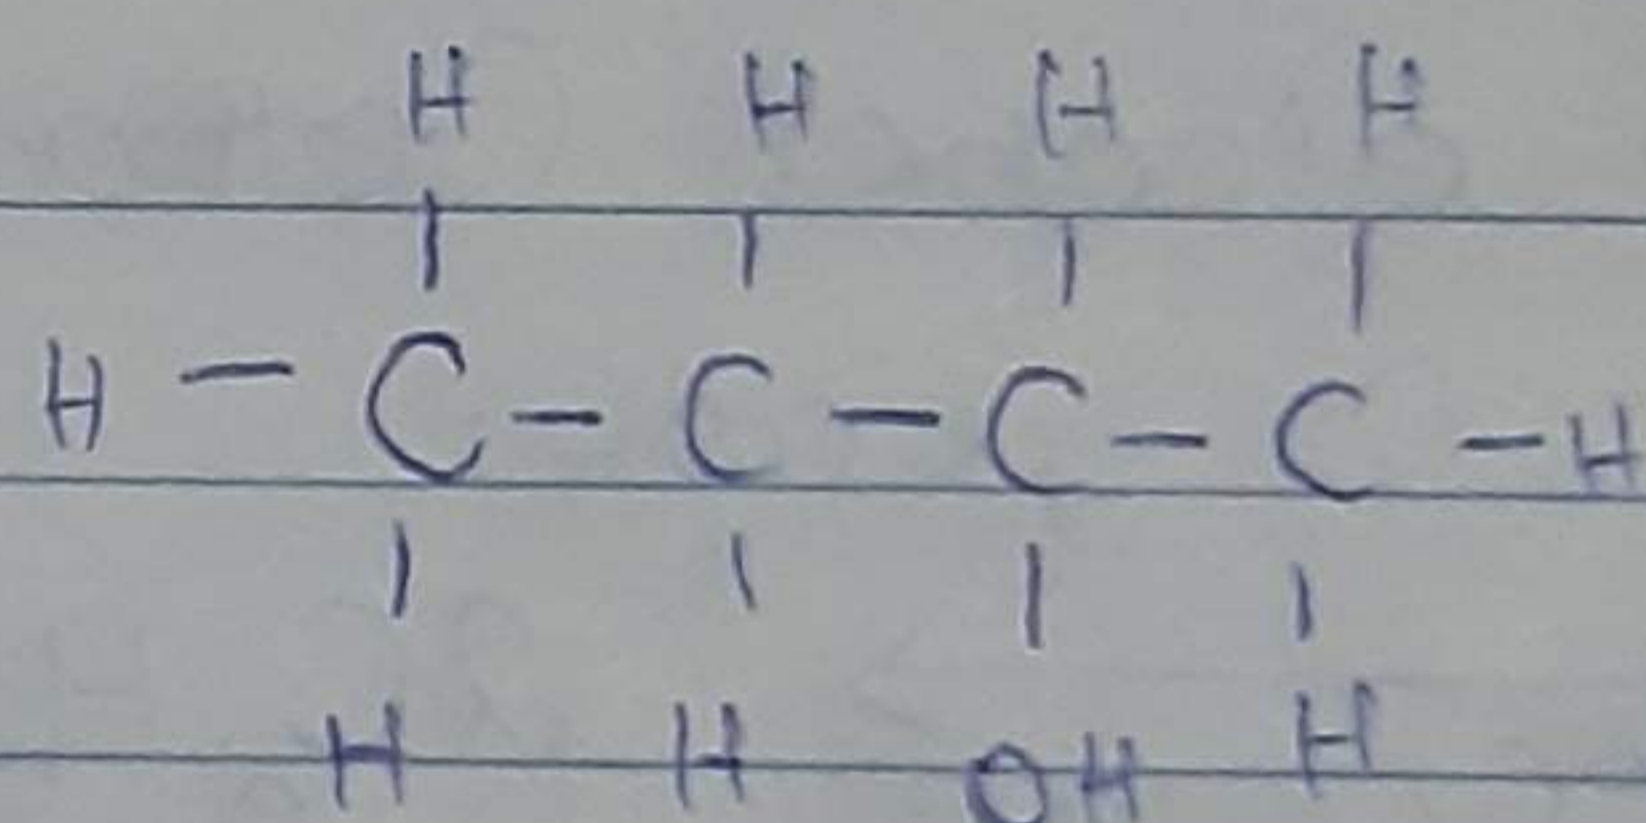 H H H H
H - C - C - C - C - H
H H OH H